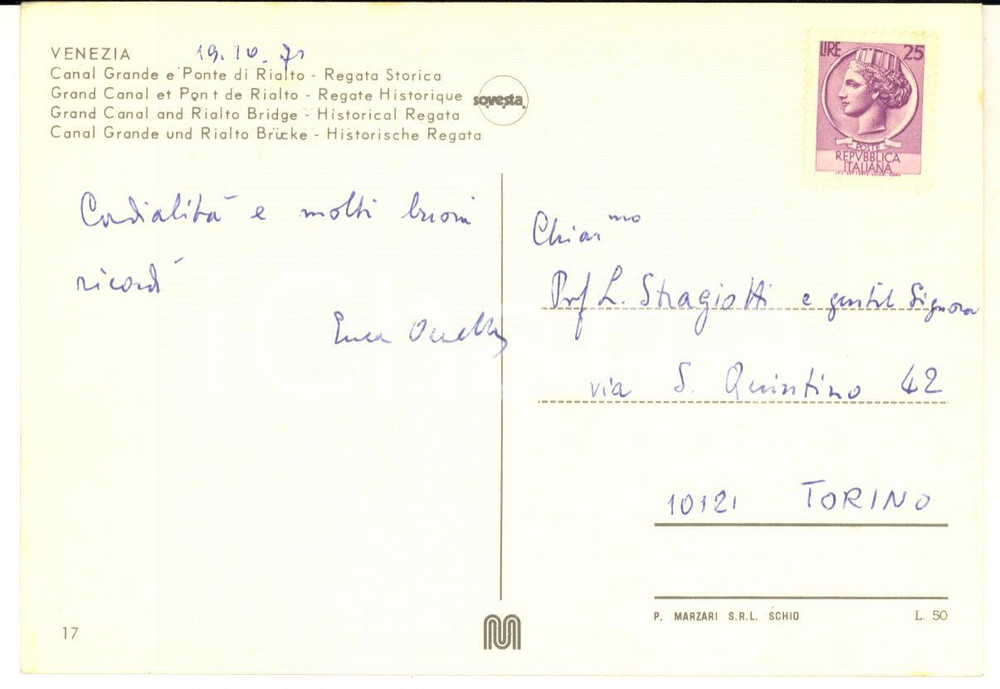 VENEZIA 19.10.71
Canal Grande e Ponte di Rialto - Regata Storica
Grand Canal et Pont de Rialto - Regate Historique
Grand Canal and Rialto Bridge - Historical Regata
Canal Grande und Rialto Brücke - Historische Regata
sovesta
LIRE 25
POSTE
REPVBBLICA
ITALIANA
Cordialità e molti buoni
ricordi
Chiar.mo
Prof L. Stragiotti e gentil Signora
via S. Quintino 42
10121 TORINO
P. MARZARI S.R.L. SCHIO L. 50
17